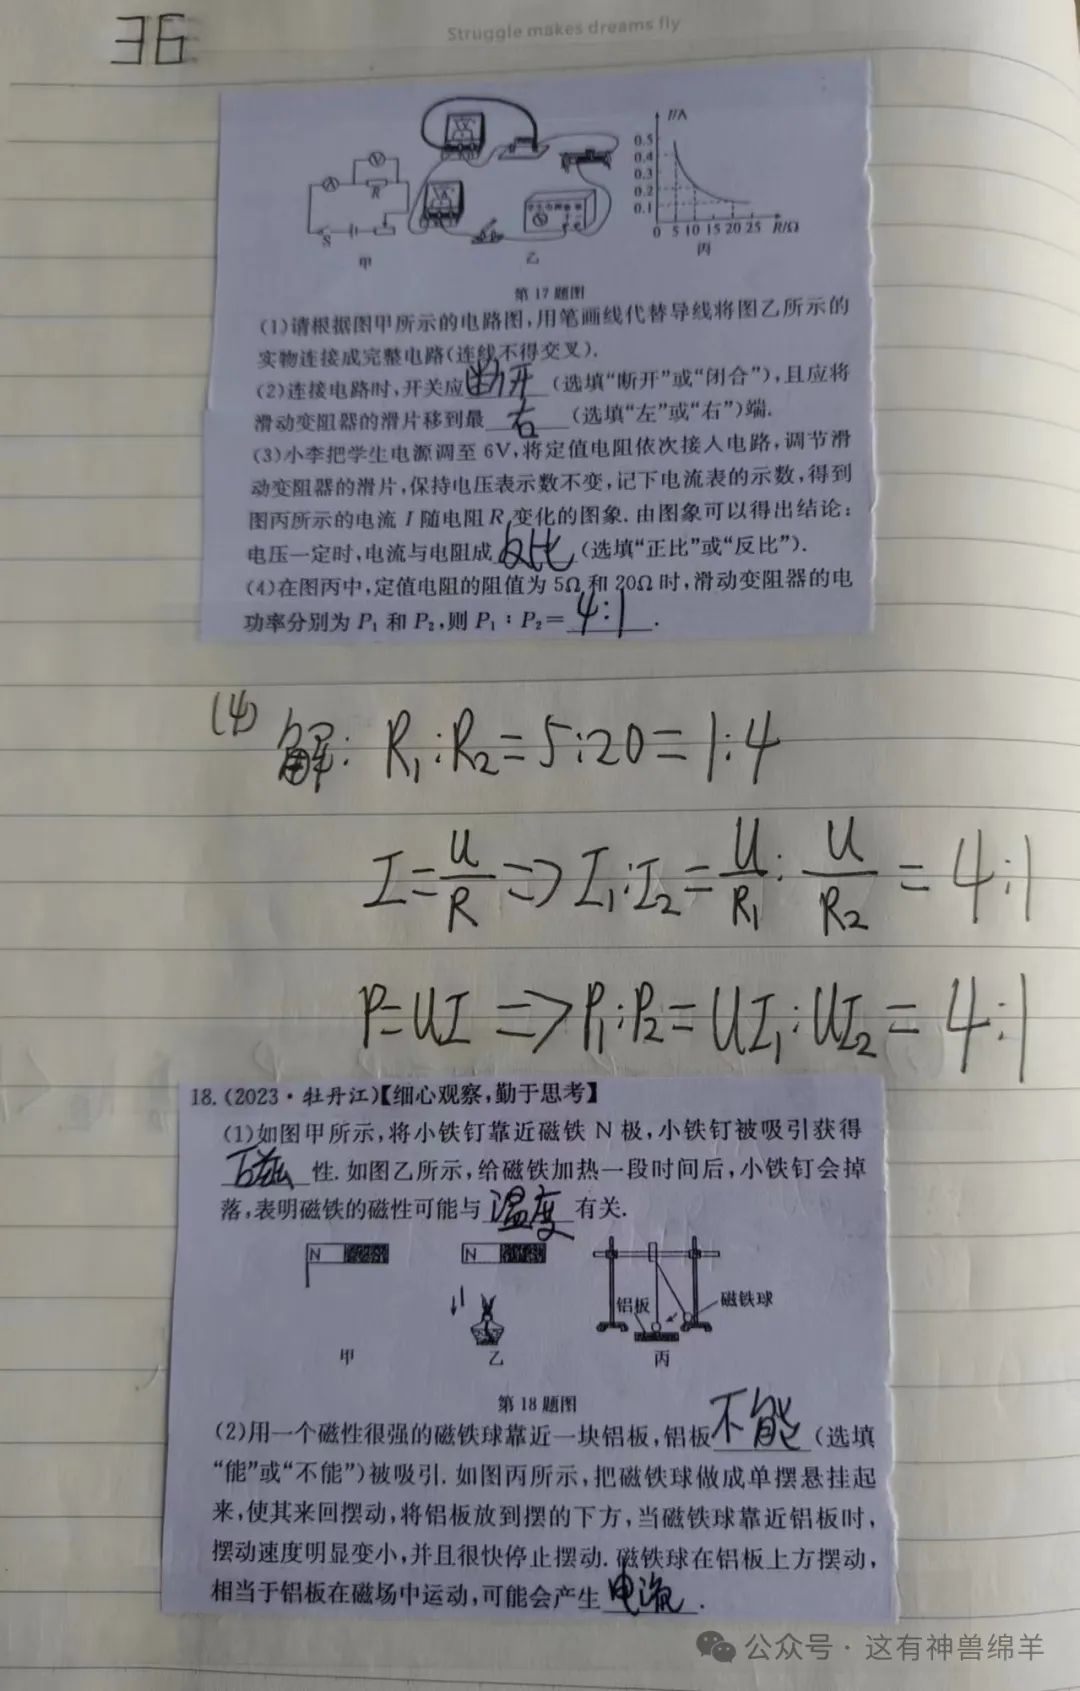 36
Struggle makes dreams fly
I/A
0.5
0.4
0.3
0.2
0.1
0 5 10 15 20 25 R/Ω
A
V
R
S
甲
乙
丙
第17题图
(1)请根据图甲所示的电路图,用笔画线代替导线将图乙所示的
实物连接成完整电路(连线不得交叉).
(2)连接电路时,开关应断开(选填“断开”或“闭合”),且应将
滑动变阻器的滑片移到最右(选填“左”或“右”)端.
(3)小李把学生电源调至6V,将定值电阻依次接入电路,调节滑
动变阻器的滑片,保持电压表示数不变,记下电流表的示数,得到
图丙所示的电流I随电阻R变化的图象.由图象可以得出结论:
电压一定时,电流与电阻成反比(选填“正比”或“反比”).
(4)在图丙中,定值电阻的阻值为5Ω和20Ω时,滑动变阻器的电
功率分别为P₁和P₂,则P₁:P₂=4:1.
(4)
解: R₁:R₂=5:20=1:4
I=U/R => I₁:I₂=U/R₁:U/R₂=4:1
P=UI => P₁:P₂=UI₁:UI₂=4:1
18.(2023·牡丹江)【细心观察,勤于思考】
(1)如图甲所示,将小铁钉靠近磁铁N极,小铁钉被吸引获得
磁性.如图乙所示,给磁铁加热一段时间后,小铁钉会掉
落,表明磁铁的磁性可能与温度有关.
N
N
铝板
磁铁球
甲
乙
丙
第18题图
(2)用一个磁性很强的磁铁球靠近一块铝板,铝板不能(选填
“能”或“不能”)被吸引.如图丙所示,把磁铁球做成单摆悬挂起
来,使其来回摆动,将铝板放到摆的下方,当磁铁球靠近铝板时,
摆动速度明显变小,并且很快停止摆动.磁铁球在铝板上方摆动,
相当于铝板在磁场中运动,可能会产生电流.
公众号·这有神兽绵羊